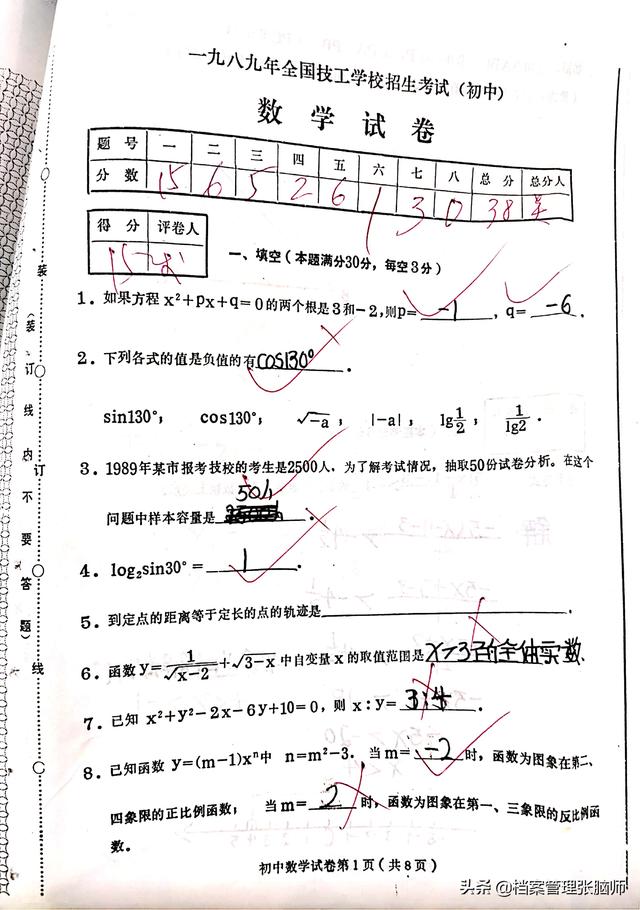 一九八九年全国技工学校招生考试(初中)
数学试卷
题号 一 二 三 四 五 六 七 八 总分 总分人
分数 15 6 5 2 6 1 3 0 38
得分 评卷人
15
一、填空(本题满分30分,每空3分)
1.如果方程 x²+px+q=0的两个根是3和-2,则p= -1 ,q= -6 .
2.下列各式的值是负值的有cos130° .
sin130°; cos130°; √-a ; |-a|; lg1/2 ; 1/lg2 .
3.1989年某市报考技校的考生是2500人,为了解考试情况,抽取50份试卷分析。在这个
50人
问题中样本容量是 .
4.log₂sin30°= 1 .
5.到定点的距离等于定长的点的轨迹是 .
6.函数y=1/√x-2+√3-x 中自变量x的取值范围是x>3的全体实数.
7.已知 x²+y²-2x-6y+10=0,则 x:y= 3:4 .
8.已知函数 y=(m-1)xⁿ中 n=m²-3. 当m= -2 时,函数为图象在第二、
四象限的正比例函数; 当m= 2 时,函数为图象在第一、三象限的反比例函
数。
初中数学试卷第1页(共8页)
(装订线内不要答题)
装
订
线
头条 @档案管理张脑师